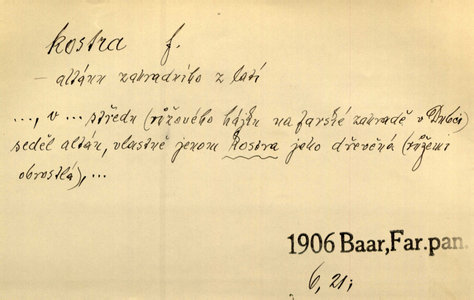 kostra f.
– altánu zahradního z latí
..., v ... středu (růžového hájku na farské zahradě v Dubči)
seděl altán, vlastně jenom kostra jeho dřevěná (růžemi
obrostlá), ...
1906 Baar, Far. pan.
6, 21;